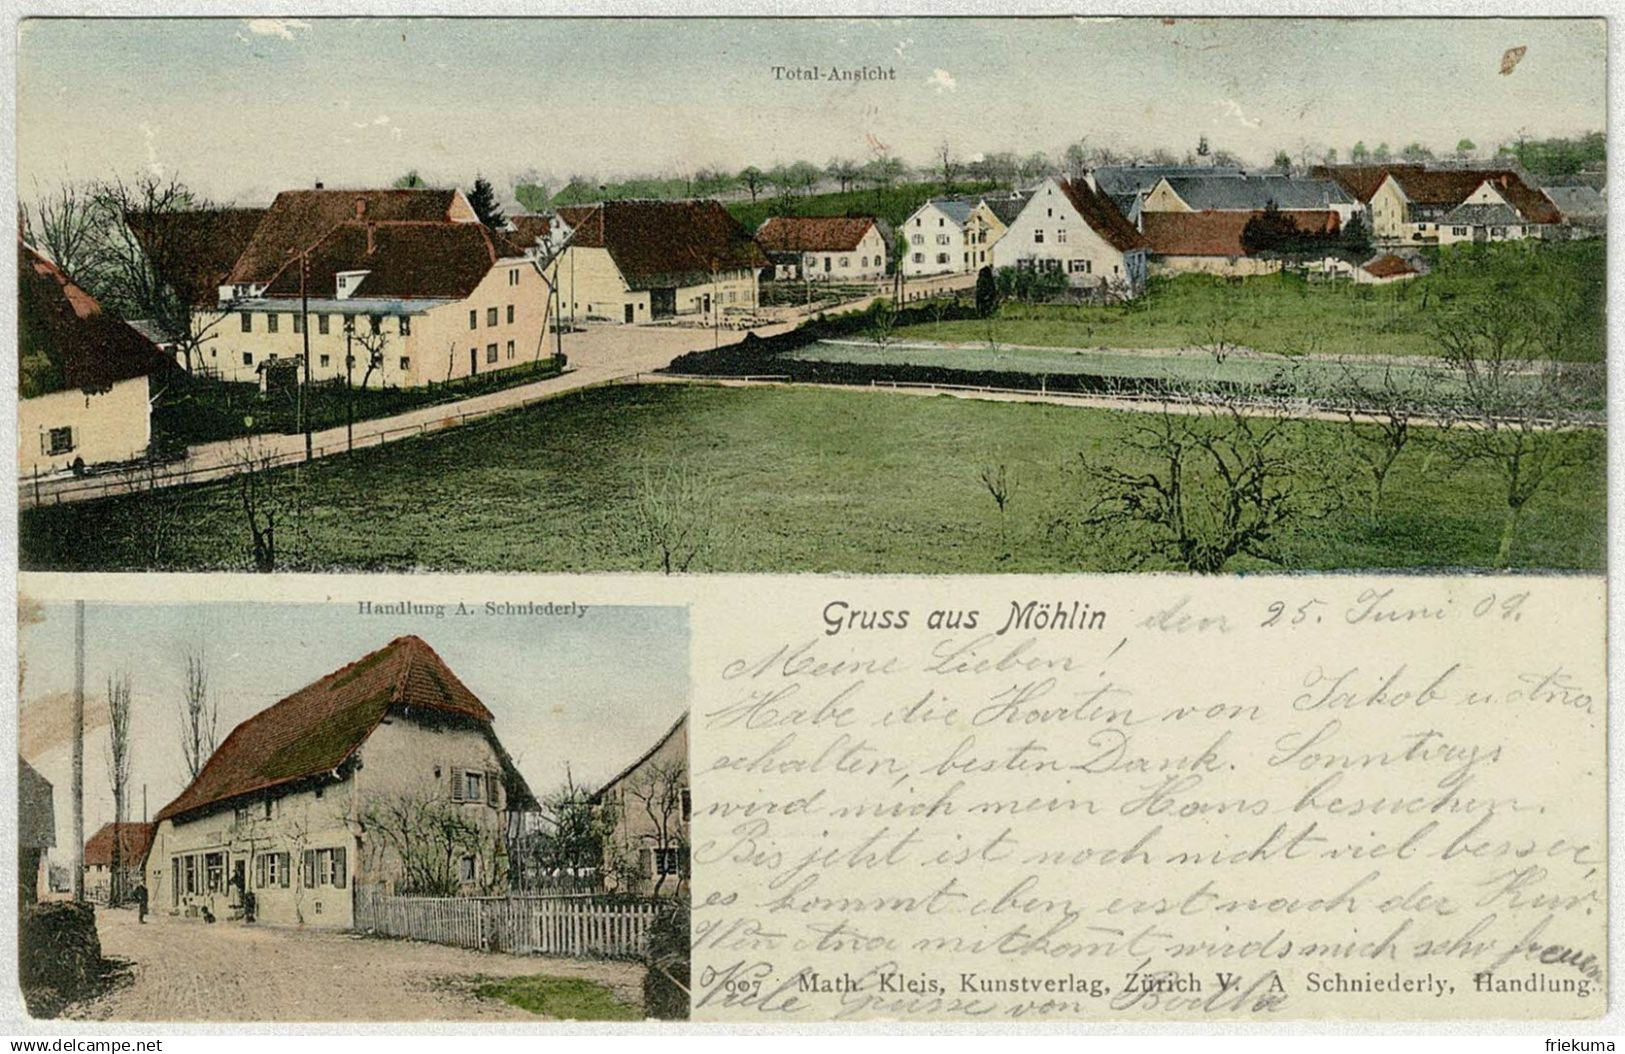 Total-Ansicht
Handlung A. Schniederly
Gruss aus Möhlin den 25. Juni 09.
Meine Lieben!
Habe die Karten von Jakob u. Ana
erhalten, besten Dank. Sonntags
wird mich mein Hans besuchen.
Bis jetzt ist noch nicht viel besser,
es kommt eben erst nach der Kur.
Wen Ana mitkomt, wirds mich sehr freuen
Viele Grüsse von Bertha
907 Math. Kleis, Kunstverlag, Zürich V. A Schniederly, Handlung.
delcampe.com
friekuma